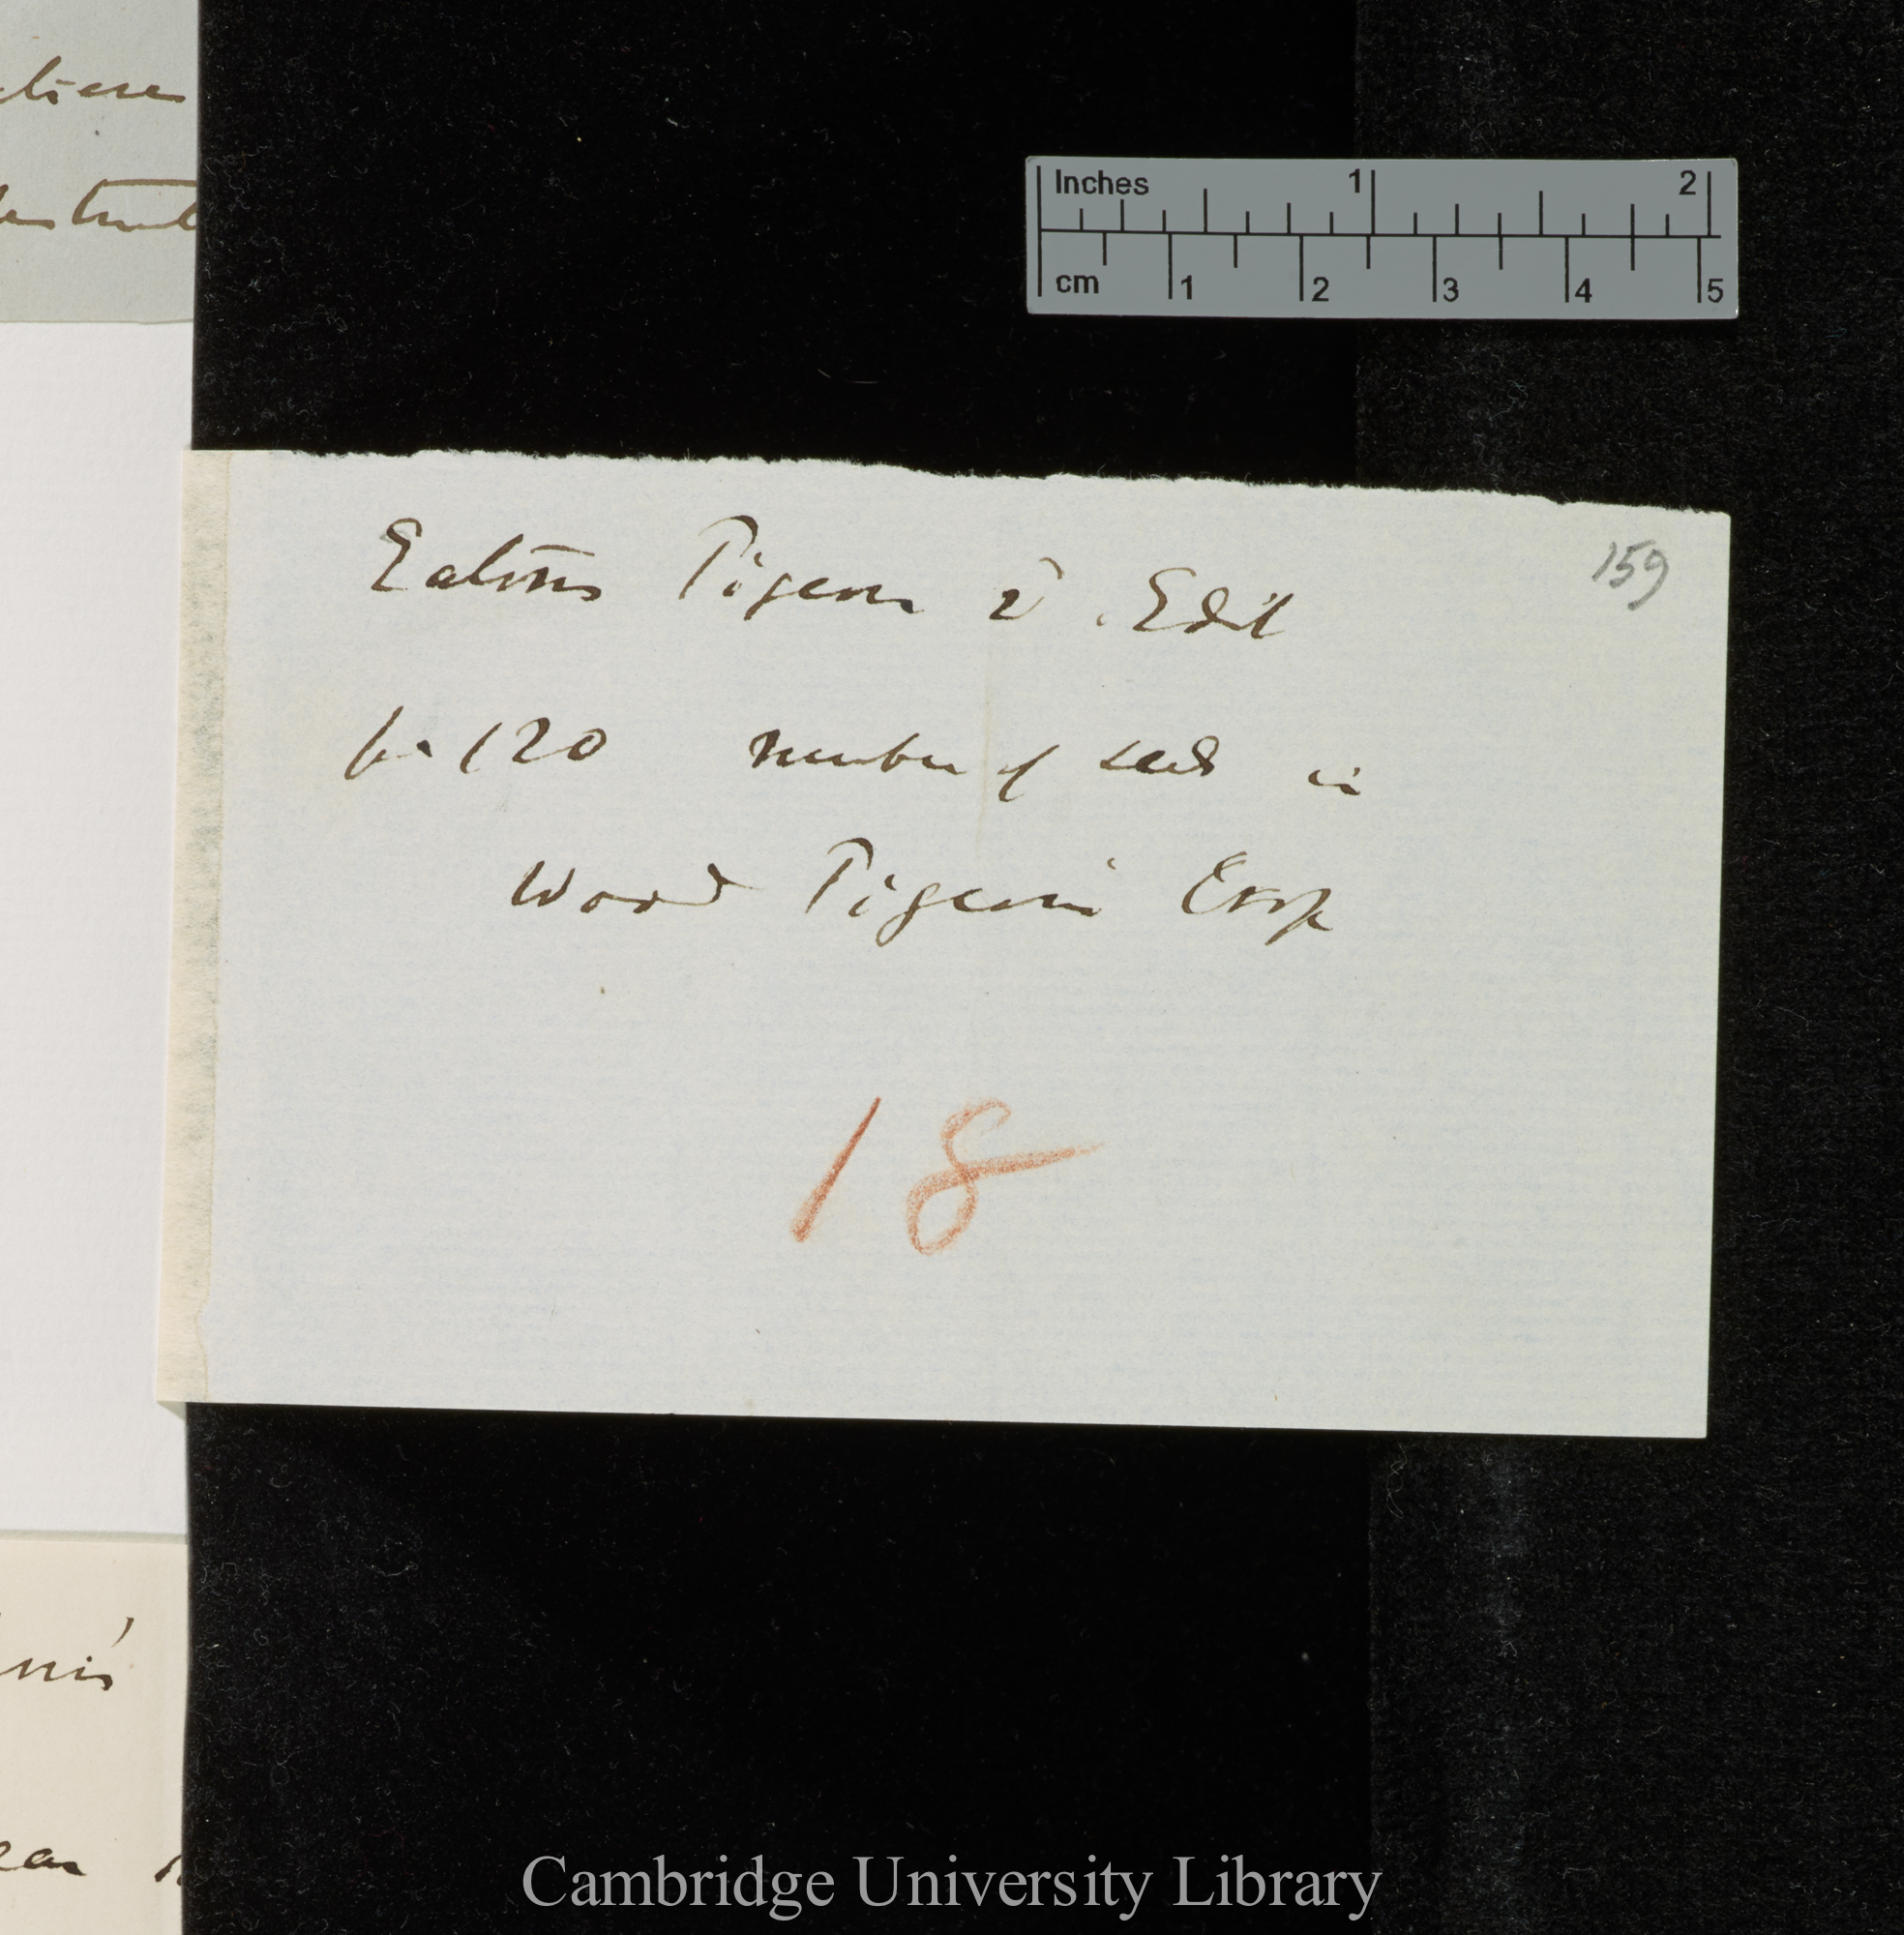 Inches 1 2
cm 1 2 3 4 5
159
Eatons Pigeons 2d. Edit
p. 120 number of seeds in
Wood Pigeons Crop
18
Cambridge University Library